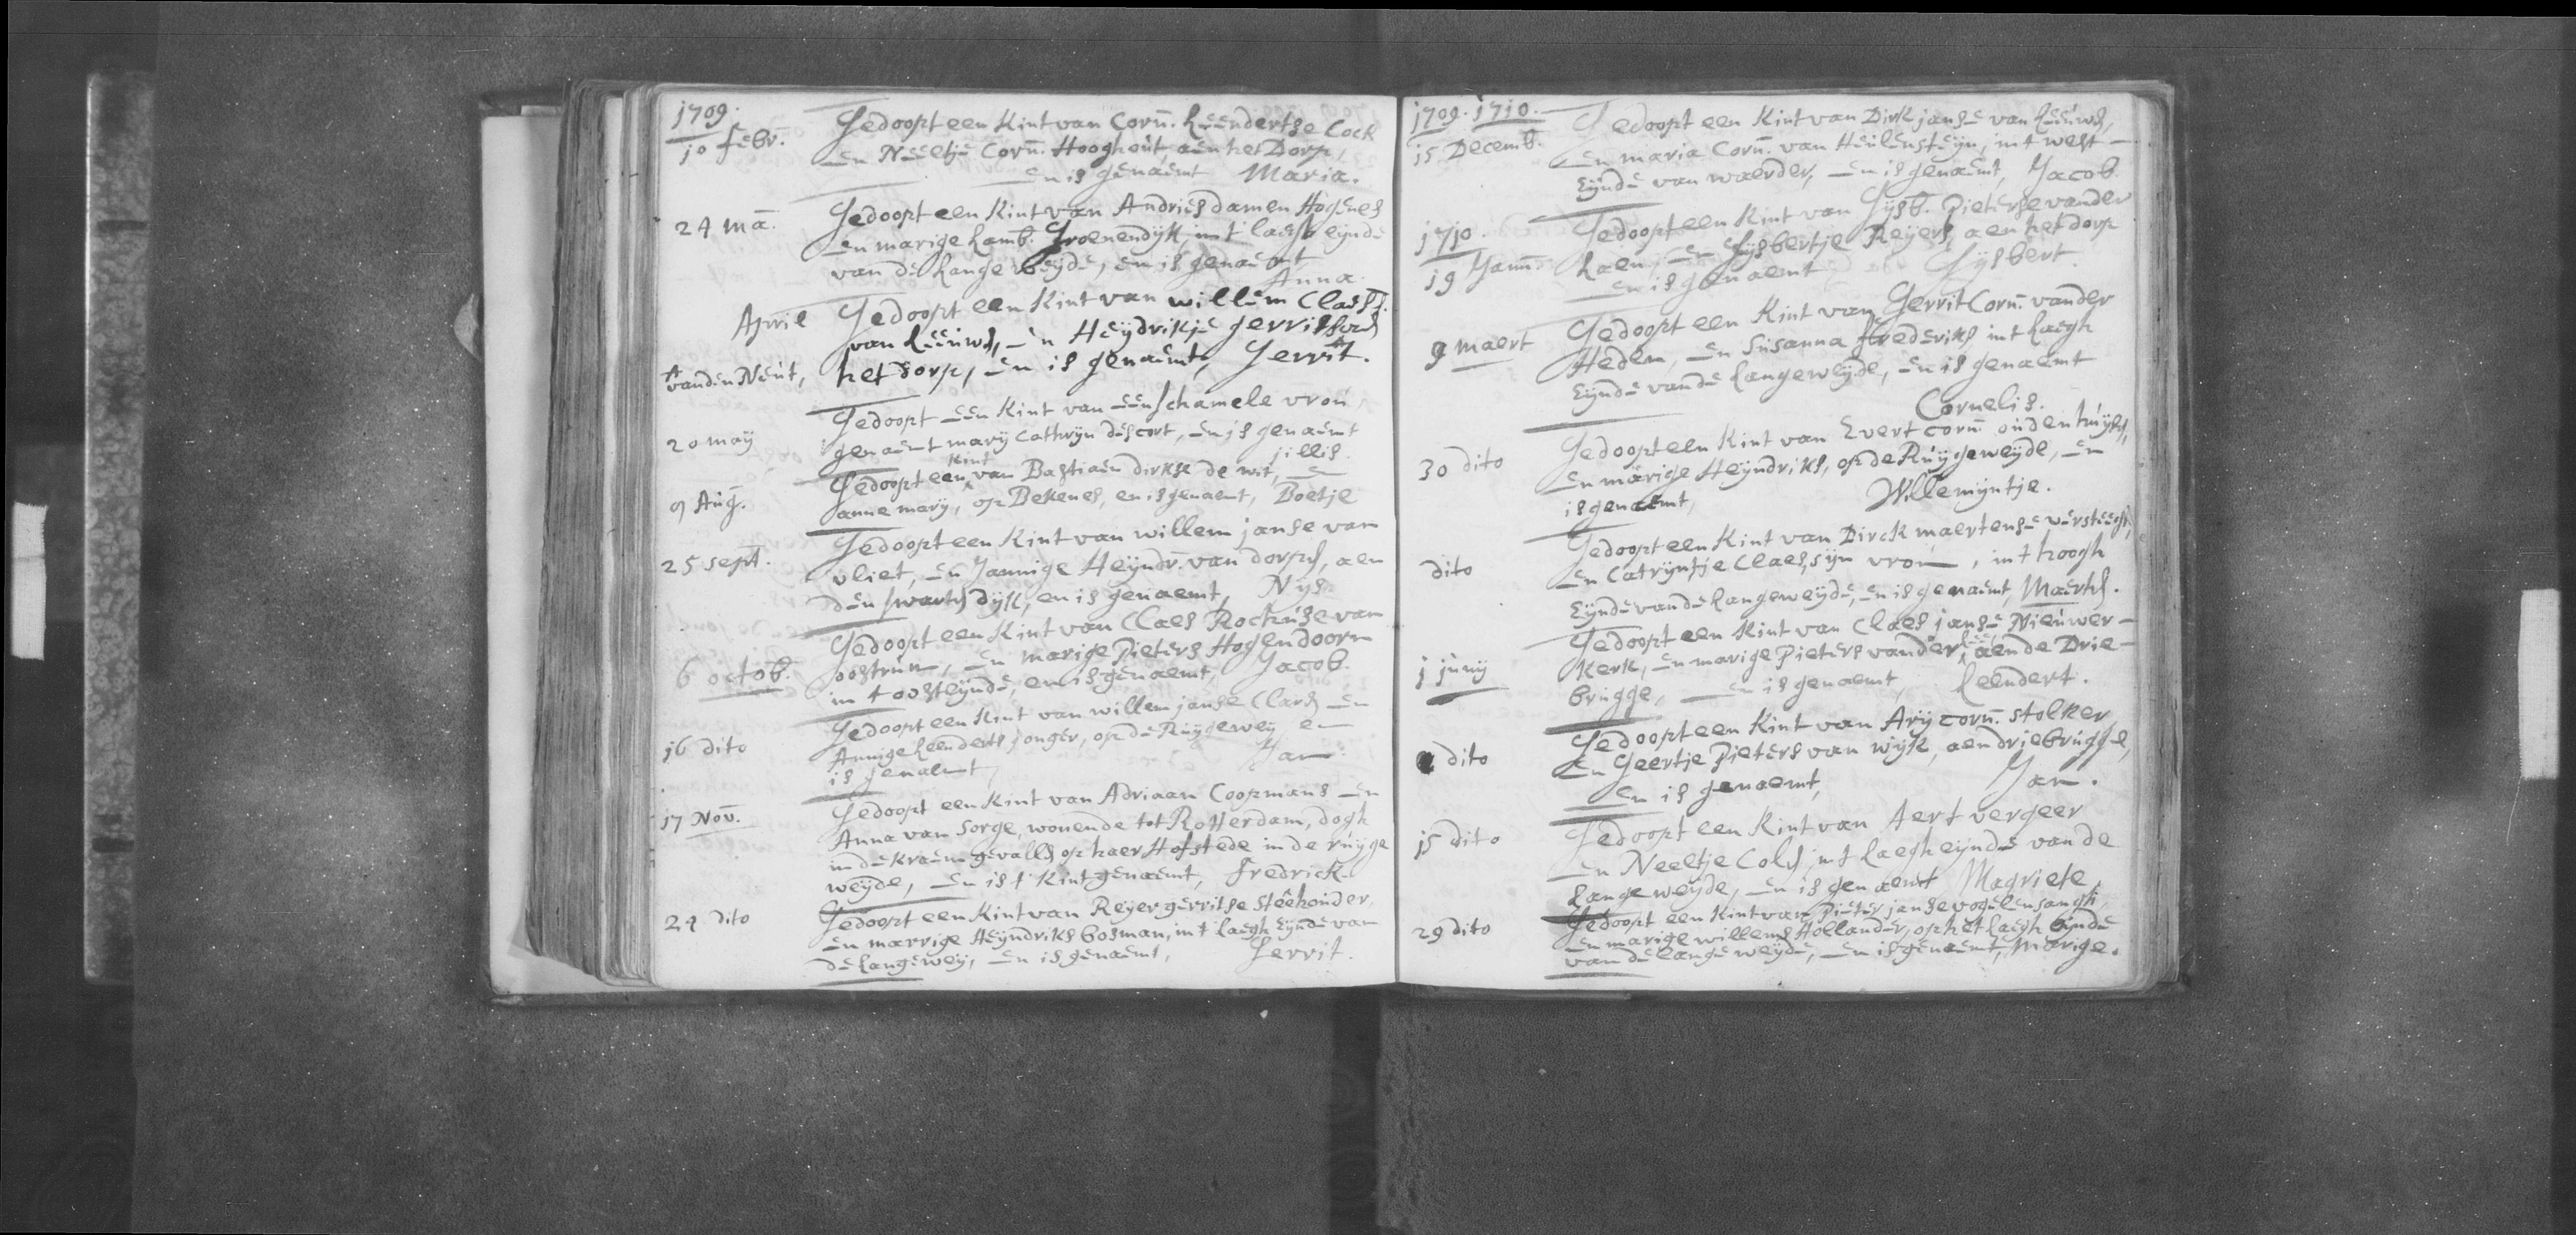 1709.
10 Febr. Gedoopt een Kint van Corn. Leendertse Cock
en Neeltje Corn. Hooghout, aen het Dorp,
en is genaemt Maria.
24 Ma. Gedoopt een Kint van Andries damen Hogenes
en marige Lamb. Groenendijk, int laegh eynde
van de Lange weyde, en is genaemt
Anna
April Gedoopt een Kint van willem Claess.
van Leeuwen, en Heyndrikje gerrits
vanden Neut, het dorp, en is genaemt, Gerrit.
20 may Gedoopt een Kint van een schamele vrou
genaemt mary Cathryn descort, en is genaemt
jillis.
9 Aug. Gedoopt een Kint van Bastiaen dirkse de wit, en
anne mary, op Bekenes, en is genaemt, Boetje
25 sept. Gedoopt een Kint van willem janse van
vliet, en Jannige Heyndr. van dorpen, aen
den swarten dijk, en is genaemt, Nijs
6 octob. Gedoopt een Kint van Claes Rochuse van
oostrum, en marige Pieters Hogendoorn
int oosteynde, en is genaemt, Jacob.
16 dito Gedoopt een Kint van willem janse Claren en
Annige Leenderts jonger, op de Ruygewey en
is genaemt, Jan
17 Nov. Gedoopt een Kint van Adriaan Coopmans en
Anna van Sorge, wonende tot Rotterdam, dogh
in de kraem gevallen op haer Hofstede in de ruyge
weyde, en is t Kint genaemt, Fredrick
24 dito Gedoopt een Kint van Reyer gerritse Steehouder,
en marrige Heyndriks bosman, int laegh Eynde van
de Langewey, en is genaemt, Gerrit.
1709. 1710.
15 Decemb. Gedoopt een Kint van Dirk janse van Leeuwen,
en maria Corn. van Heulensteyn, int west-
Eynde van waerder, en is genaemt, Jacob.
1710.
19 Janu. Gedoopt een Kint van Gysb. Pieterse vander
Laen, en Gysbertje Reyers, aen het dorp
en is genaemt Gysbert.
9 maert Gedoopt een Kint van Gerrit Corn. vander
Heden, en Susanna frederiks, int Laegh
Eynde vande Langeweyde, en is genaemt
Cornelis.
30 dito Gedoopt een Kint van Evert Corn. ouden huysen,
en marige Heyndriks, op de Ruygeweyde, en
is genaemt, Willemyntje.
dito Gedoopt een Kint van Dirck maertense versteegh,
en Catryntje Claes, syn vrou, int hoogh
Eynde vande Langeweyde, en is genaemt, Maerten.
1 juny Gedoopt een Kint van Claes janse Nieuwer-
kerk, en marige Pieters vander Lee, aen de Drie-
brugge, en is genaemt, Leendert.
dito Gedoopt een Kint van Ary corn. stolker,
en Geertje Pieters van wijk, aen driebrugge,
en is genaemt, Jan.
15 dito Gedoopt een Kint van Aert vergeer
en Neeltje Colen, int Laegh eynde van de
Lange weyde, en is genaemt Magriete,
29 dito Gedoopt een Kint van Pieter janse vogelensangh,
en marige willems Hollander, op het laegh Eynde
van de lange weyde, en is genaemt, Marige.